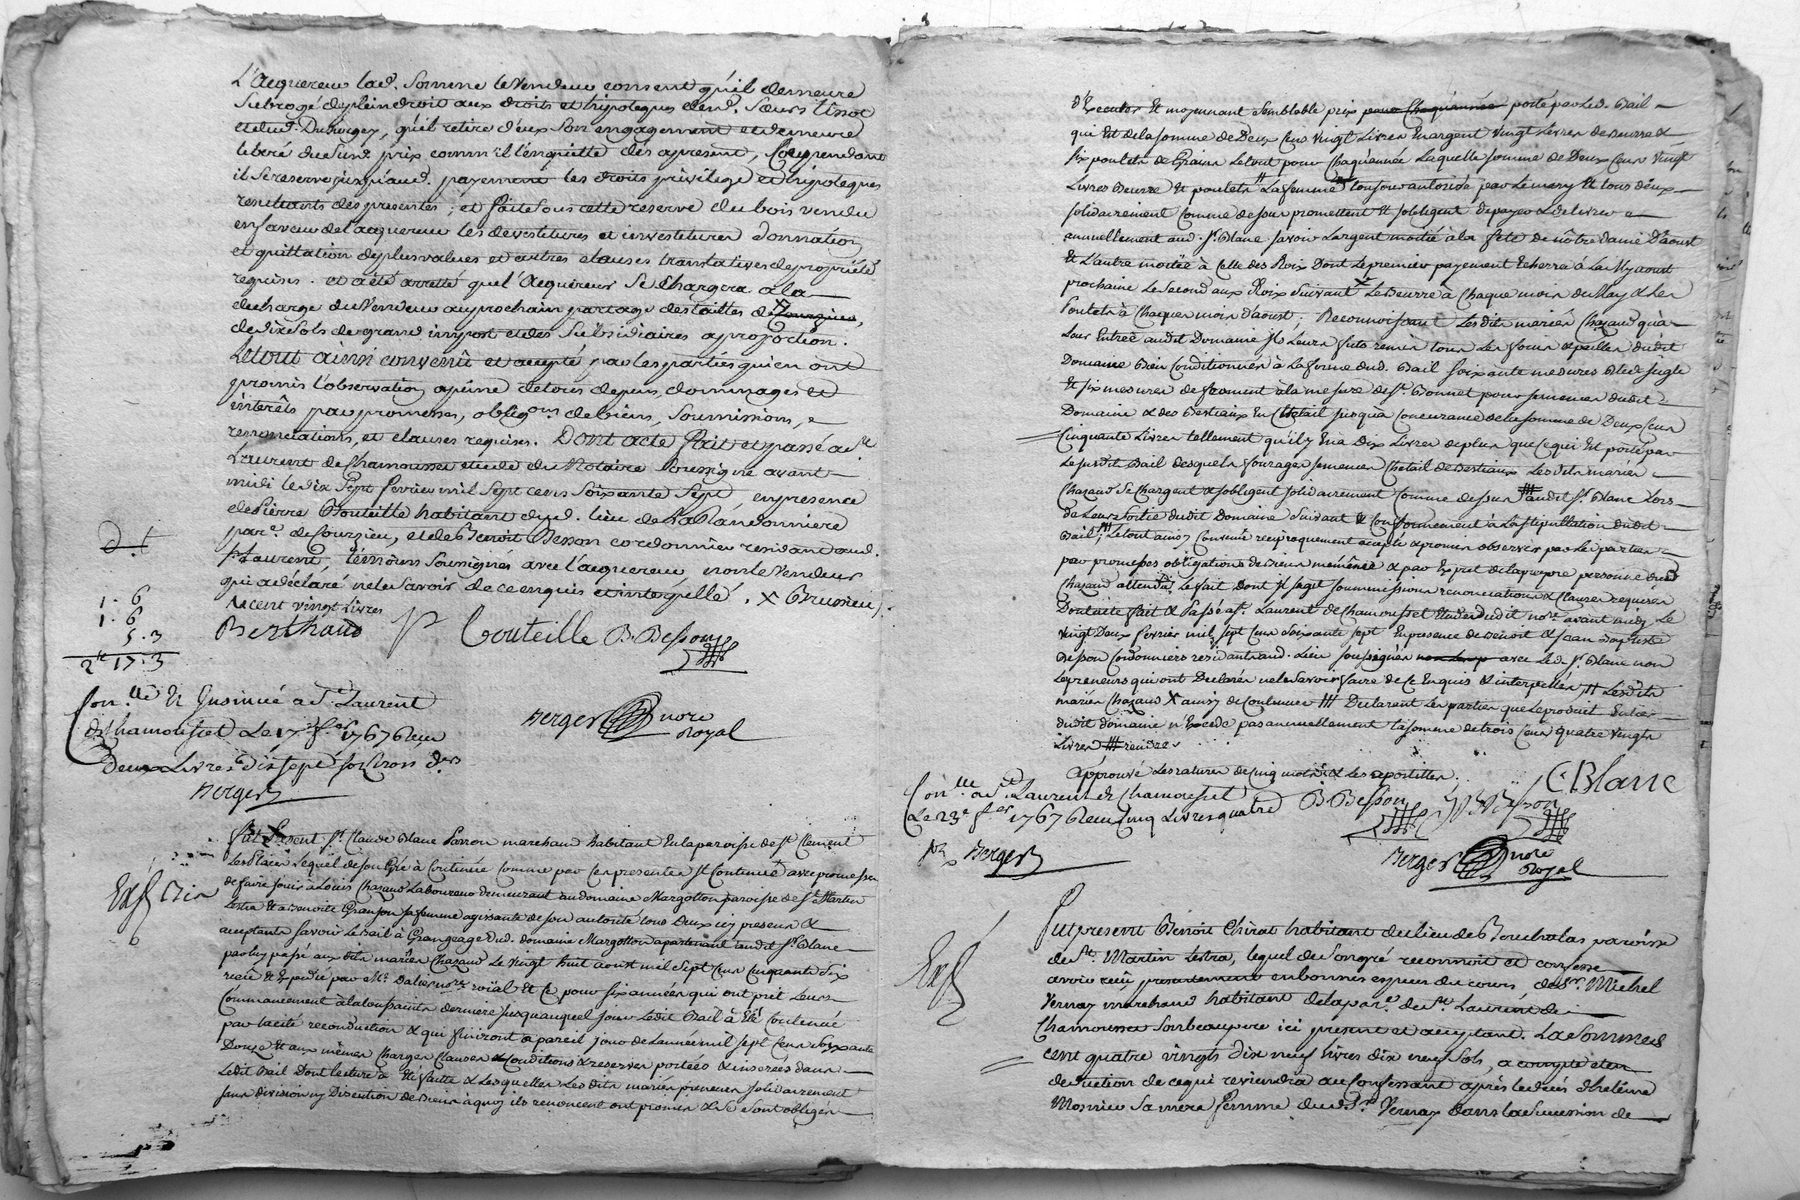 L'acquereur lad. Somme le vendeur consent qu'il demeure
Subrogé de plein droit aux droits et hipoteques desd. Sœurs
et dud. Duverger, qu'il retire d'eux son engagement et demeure
libéré du susd. prix comm'il l'en quitte dés apresent, Cependant
il se reserve jusqu'aud. payement les droits privilege et hipoteques
resultants des presentes ; et faite sous cette reserve du bois vendu
en faveur de l'acquereur les devestitures et investitures donnation
et quittation de plus values et autres clauses translatives de proprieté
requises. et a été arretté que l'acquereur Se Chargera a la
decharge du Vendeur au prochain partage des tailles de
de dix sols de grand impost et des Subsidiaires a propoction.
Le tout ainsi convenû et accepté par les parties qui en ont
promis l'observation a peine de tous depens, dommages et
interêts par promesses, obligons. de biens, Soumissions, e
renonciations, et clauses requises. Dont acte fait et passé a St.
Laurent de Chamousset etude du Notaire Soussigné avant
midi le dix Sept fevrier mil Sept cens Soixante Sept, en presence
de Pierre Bouteille habitant dud. lieu de la Randonniere
parse. de Sourzieu, et de Benoit Besson cordonnier residant aud.
St Laurent, témoins Soussignés avec l'acquereur non le Vendeur
qui a déclaré ne le Savoir de ce enquis et interpellé. X Brussieu.
a cent vingt livres
1. 6
1. 6
5. 3
2tt 17. 3
Berthaud Bouteille B. Besson
Berger nore
Royal
Con.lle & Insinué a St. Laurent
de Chamousset Le 17e fer 1767 Reçu
Deux Livres dix sept sols trois drs
Berger
fut present Sr. Claude Blanc Parron marchand habitant En la paroisse de St Clement
Les Places Lequel de Son Gré à Continué Comme par Ces presentes Il Continue avec promesse
de faire jouir à Louis Chazaud Laboureur demeurant au domaine Margotton paroisse de St Martin
Lestra Et a Benoite Granjon sa femme agissante de son autorité tous Deux icy presens &
acceptants savoir Le Bail à Grangeage dud. domaine Margotton apartenant audit Sr Blanc
par luy passé aux dits mariés Chazaud Le vingt huit aoust mil Sept Cens Cinquante Six
recû & Expedié par Me. Dalier nore roïal Et Ce pour six années qui ont prit Leurs
Commencement à la toussaints derniere jusqu'auquel jour Ledit Bail à Eté Continué
par tacite reconduction & qui finiront a pareil jour de L'année mil Sept Cens Soixante
Douze Et aux mêmes Charges Clauses & Conditions & reserves portées & inserées dans
Ledit Bail Dont lecture à Eté faitte & Lesquelles Les dits mariés preneurs solidairement
sans division ny Discution de Biens à quoy ils renoncent ont promis & Se Sont obligés
d'Executer Et moyennant Semblable prix porté par Led. Bail
qui Est de la somme de Deux Cens Vingt Livres En argent vingt Livres de Beurre &
six poulets de Grains Le tout pour Chaqu'année Laquelle somme de Deux Cens Vingt
Livres Beurre Et poulets La femme toujours autorisée par Le mary Et tous deux
solidairement Comme dessus promettent Et s'obligent de payer & delivrer
annuellement aud. Sr. Blanc savoir L'argent moitié à la fete de nôtre dame D'aoust
Et L'autre moitié à Celle des Rois Dont Le premier payement Echerra à La My aoust
prochaine Le Second aux Rois Suivant X Le Beurre à Chaque mois de May & Les
Poulets à Chaque mois d'aoust ; Reconnoissant Les dits mariés Chazaud qu'à
Leur Entrée audit Domaine Il Leurs futs remis tous Les foins & pailles dudit
Domaine Bien Conditionnés à La forme dud. Bail soixante mesures Bled seigle
Et six mesures de froment à la mesure de St. Bonnet pour semences dudit
Domaine & des Bestiaux En Chetail jusqu'a Concurance de la somme de Deux Cens
Cinquante Livres tellement qu'il y En a dix Livres de plus que Ce qui Est porté par
Le susdit Bail desquels fourages semences Chetail de Bestiaux Les dits mariés
Chazaud Se Chargent & s'obligent solidairement Comme dessus audit Sr. Blanc Lors
de Leurs sortie dudit Domaine Suivant Et Conformement à La stipullation dudit
Bail Le tout ainsy Convenu reciproquement accepté & promis observer par Les parties
par promesses obligations de Biens mêmême & par Exprès de la propre personne dud
Chazaud attendu Le fait Dont Il s'agit soummissions renonciations & Clauses requises
Dont acte fait & Passé a St. Laurent de Chamousset Etude dudit nore avant midy Le
vingt Deux fevrier mil sept Cens Soixante Sept En presence de Benoit & Jean Baptiste
Besson Cordonniers residants aud. Lieu Soussignés avec Led. Sr. Blanc non
Les preneurs qui ont Declarés ne le savoir faire de Ce Enquis & interpellés # Lesdits
mariés Chazaud X ainsy de Continuer ### Declarent Les parties que Le produit Entier
dudit domaine n'Excede pas annuellement la somme de trois Cens quatre vingts
Livres
Approuvé Les ratures de Cinq mots & Les apostilles
C. Blanc
B. Besson J B Besson
Con.lle a St. Laurent de Chamousset
Le 23e fer 1767 Reçu Cinq Livres quatre
Berger
Berger nore
Royal
Fut present Benoit Chirat habitant du lieu de Boucholas paroisse
de St. Martin Lestra, lequel de Son gré reconnoit et confesse
avoir reçû presentement en bonnes especes du cours de Sr. Michel
Vernay marchand habitant de la parse. de St. Laurent de
Chamousset Son beaupere ici present et acceptant. La Somme de
cent quatre vingts dix neuf livres dix neuf Sols, a compte et en
deduction de ce qui reviendra au Confessant après le decés d'helenne
Mosnier Sa mere femme dud. Sr. Vernay dans la Succession de